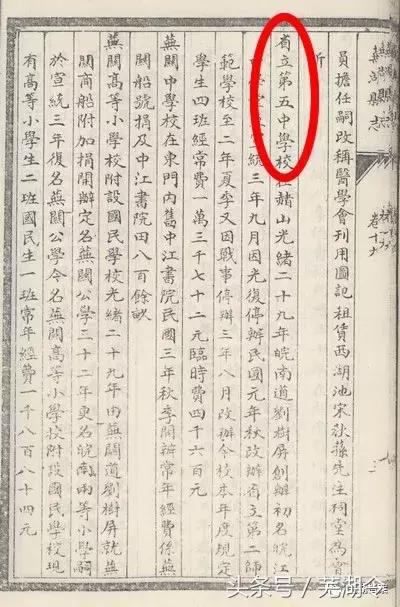 蕪湖縣志
員擔任嗣改稱醫學會刊用圖記租賃西湖池宋狄孫先生祠堂為會
所
省立第五中學校在赭山光緒二十九年皖南道劉樹屏創辦初名皖江
學堂統三年九月因光復停辦民國元年秋改辦省立第二師
範學校至二年夏季又因戰事停辦三年八月改辦今校本年度規定
學生四班經常費一萬三千七十二元臨時費四千六百元
蕪關中學校在東門內舊中江書院民國三年秋季開辦常年經費係蕪
關船號捐及中江書院田八百餘畝
蕪關高等小學校附設國民學校光緒二十九年由蕪關道劉樹屏就蕪
關商船附加捐開辦定名蕪關公學三十二年更名皖南兩等小學嗣
於宣統三年復名蕪關公學今名蕪關高等小學校附設國民學校現
有高等小學生二班國民生一班常年經費一千八百八十四元
头条号 / 芜湖